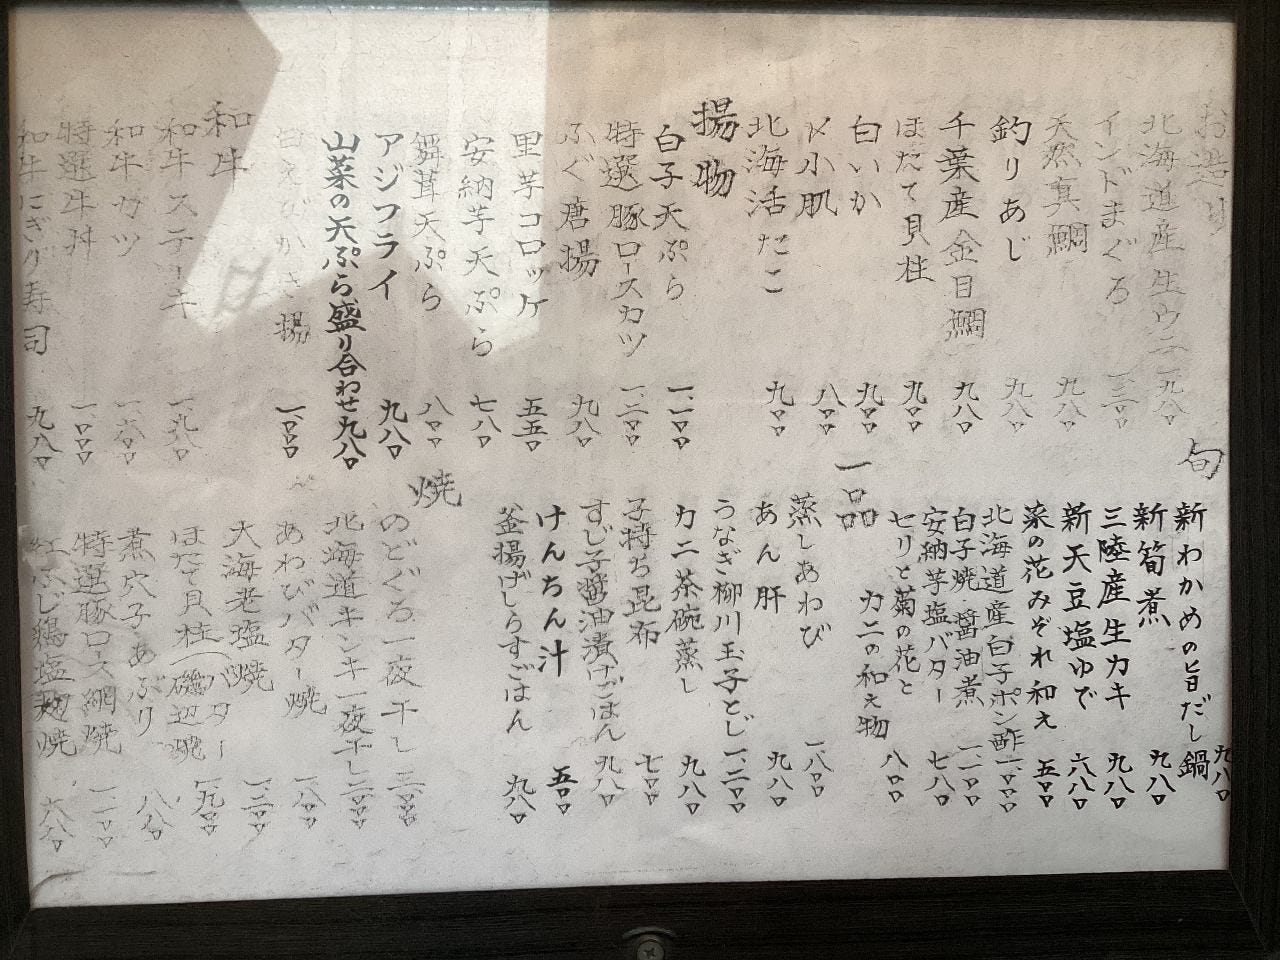 お造り
北海道産生ウニ 一、九八〇
インドまぐろ 一、三〇〇
天然真鯛 九八〇
釣りあじ 九八〇
千葉産金目鯛 九八〇
ほたて貝柱 九〇〇
白いか 九〇〇
〆小肌 八〇〇
北海活たこ 九〇〇
揚物
白子天ぷら 一、一〇〇
特選豚ロースカツ 一、二〇〇
ふぐ唐揚 九八〇
里芋コロッケ 五五〇
安納芋天ぷら 七八〇
舞茸天ぷら 八〇〇
アジフライ 九八〇
山菜の天ぷら盛り合わせ 九八〇
白えびかき揚 一、〇〇〇
和牛
和牛ステーキ 一、九八〇
和牛カツ
特選牛丼 一、〇〇〇
和牛にぎり寿司 九八〇
旬
新わかめの旨だし鍋 九八〇
新筍煮 九八〇
三陸産生カキ 九八〇
新天豆塩ゆで 六八〇
菜の花みぞれ和え 五〇〇
北海道産白子ポン酢 一、〇〇〇
白子焼 醤油煮 一、一〇〇
安納芋塩バター 七八〇
セリと菊の花と
カニの和え物 八〇〇
一品
蒸しあわび 一、八〇〇
あん肝 九八〇
うなぎ柳川玉子とじ 一、二〇〇
カニ茶碗蒸し 九八〇
子持ち昆布 七〇〇
すじ子醤油漬けごはん 九八〇
けんちん汁 五〇〇
釜揚げしらすごはん 九八〇
焼
のどぐろ一夜干し
北海道キンキ一夜干し
あわびバター焼 一、八〇〇
大海老塩焼 一、二〇〇
ほたて貝柱(バター・磯辺焼) 九〇〇
煮穴子あぶり 八八〇
特選豚ロース網焼 一、一〇〇
紅ふじ鶏塩麹焼 八八〇